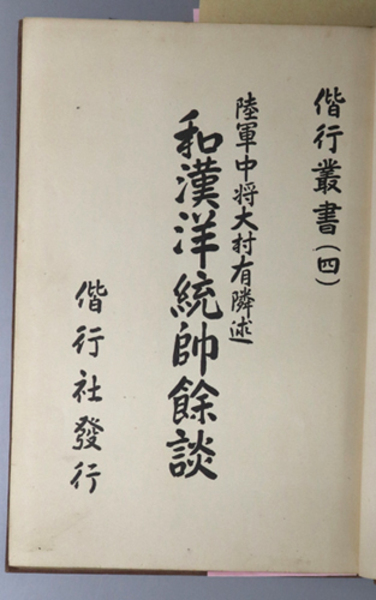 偕行叢書（四）
陸軍中将大村有隣述
和漢洋統帥餘談
偕行社發行